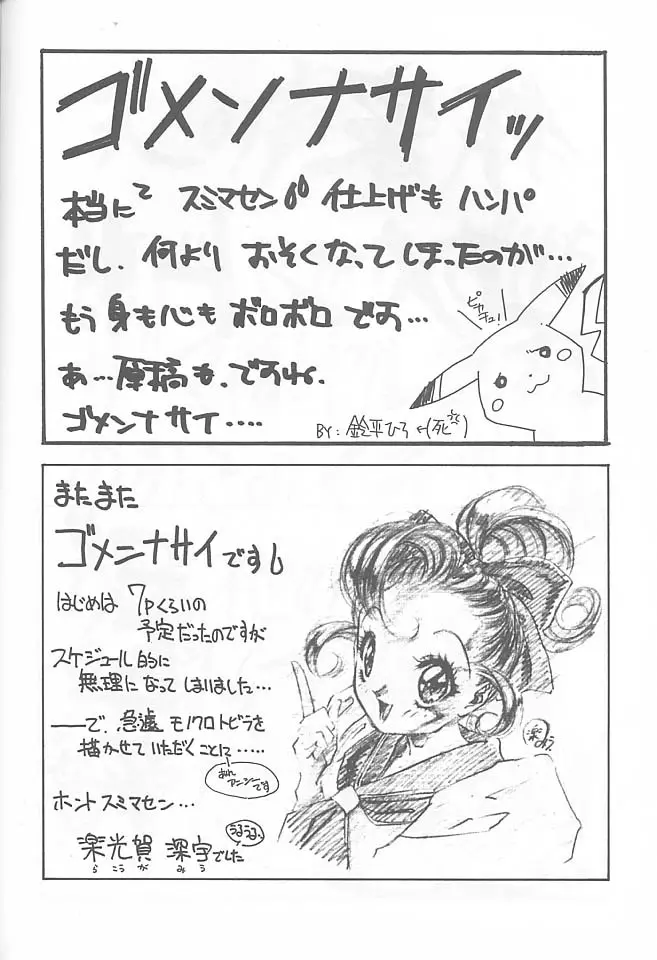 ゴメンナサイッ
本当にて スミマセン 仕上げも ハンパ
だし、何より おそくなって しまったのが…
もう 身も心も ボロボロ です…
あ…原稿も、ですね、
ゴメンナサイ‥‥
ピカチュ!
BY:鈴平ひろ ←(死)
またまた
ゴメンナサイです
はじめは 7Pくらいの
予定だったのですが
スケジュール的に
無理になって しまいました…
――で、急遽 モノクロトビラを
描かせて いただくことに……
アニシー
です
ホント スミマセン…
楽光賀 深宇でした
らこうが みう
うるうる
楽
みう